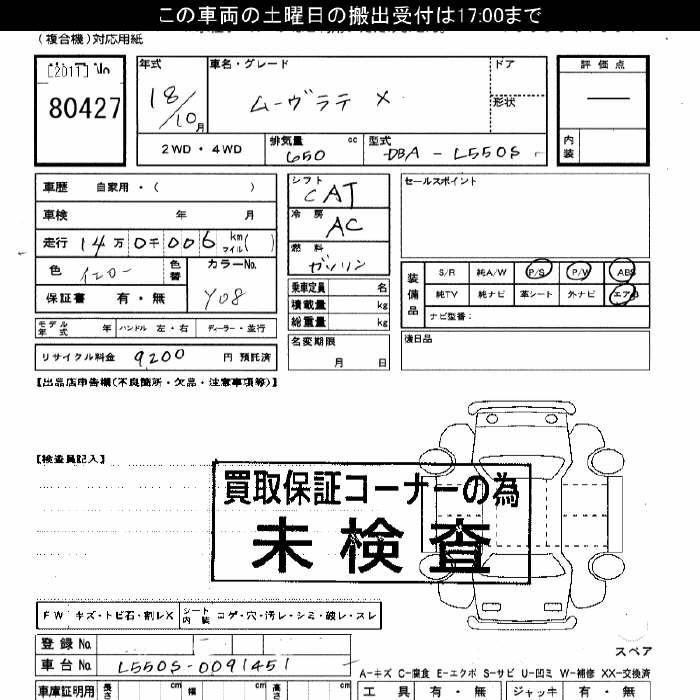 この車両の土曜日の搬出受付は17:00まで
(複合機)対応用紙
[2017] No
80427
年式
18/10月
車名・グレード
ムーヴラテ X
ドア
形状
評価点
内装
2WD・4WD
排気量 650 cc
型式 DBA-L550S
車歴 自家用・( )
車検 年 月
走行 14万0千006 km マイル( )
色 イエロー 色替
カラーNo. Y08
保証書 有・無
モデル年式 年 ハンドル 左・右 ディーラー・並行
リサイクル料金 9200 円 預託済
シフト CAT
冷房 AC
燃料 ガソリン
乗車定員 名
積載量 kg
総重量 kg
名変期限
月 日
セールスポイント
装備品
S/R 純A/W P/S P/W ABS
純TV 純ナビ 革シート 外ナビ エアB
ナビ型番:
後日品
【出品店申告欄(不良箇所・欠品・注意事項等)】
【検査員記入】
買取保証コーナーの為
未検査
FW キズ・トビ石・割レX シート内装 コゲ・穴・汚レ・シミ・破レ・スレ
登録No.
車台No. L550S-0091451
車庫証明用 長さ cm 幅 cm 高さ cm
スペア
A-キズ C-腐食 E-エクボ S-サビ U-凹ミ W-補修 XX-交換済
工具 有・無 ジャッキ 有・無